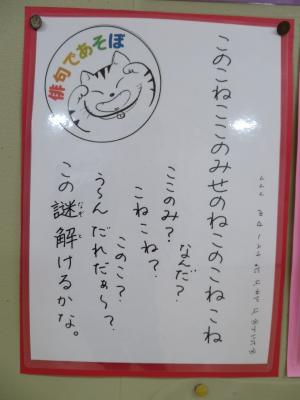 俳句であそぼ
このこねここのみせのねこのこねこね
なんだ?
ここのみ?
こねこね?
このこ?
う〜んだれだぁ〜?
この謎解けるかな。
なぞ
と